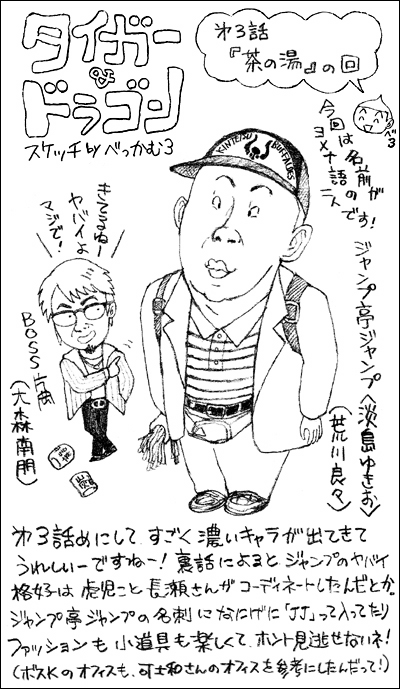 タイガー
&
ドラゴン
スケッチ by べっかむ3
第3話
『茶の湯』の回
べ3
今回は名前が
ヨメナ語の二人です!
KINTETSU BUFFALOES
きてるねー
ヤバイよ
マジで!
BOSS片岡
(大森南朋)
ジャンプ亭ジャンプ〈淡島ゆきお〉
(荒川良々)
第3話めにして、すごく濃いキャラが出てきて
うれしぃーですねー!裏話によると、ジャンプのヤバイ
格好は虎児こと長瀬さんがコーディネートしたんだとか。
ジャンプ亭ジャンプの名刺になにげに「JJ」って入ってたり
ファッションも小道具も楽しくて、ホント見逃せないネ!
(ボスKのオフィスも、可士和さんのオフィスを参考にしたんだって!)